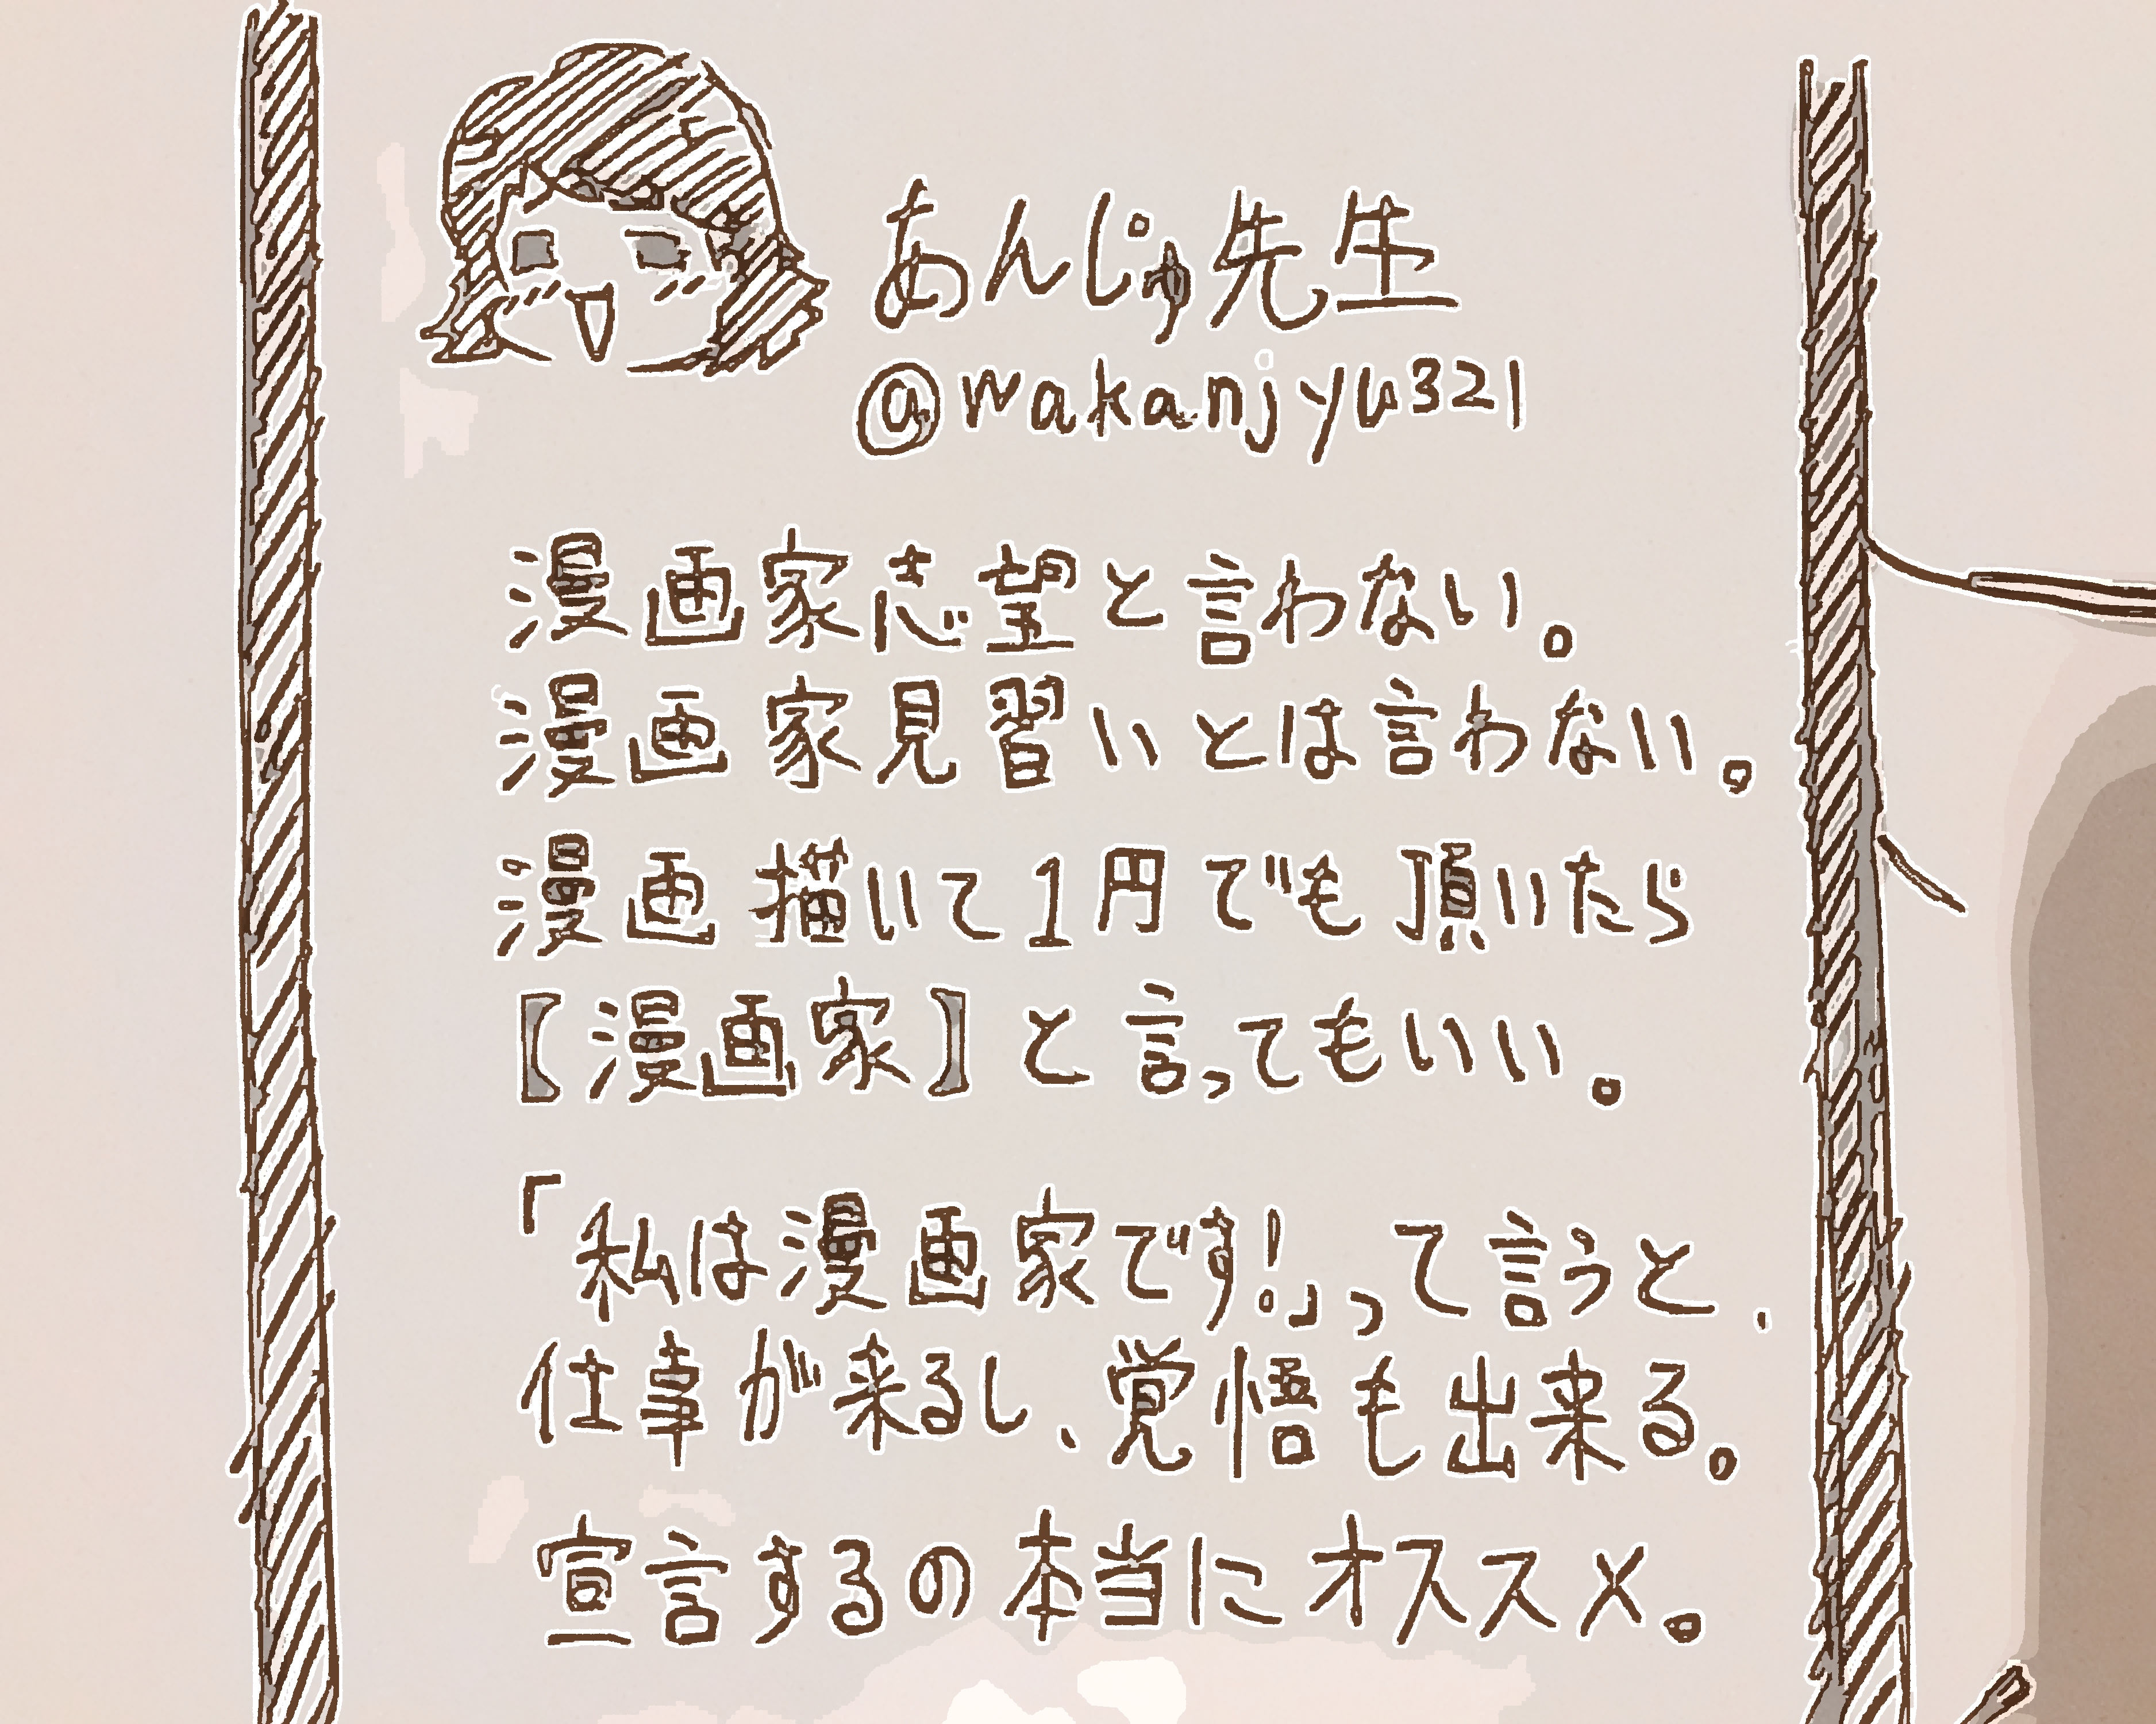 あんじゅ先生
@wakanjyu321
漫画家志望と言わない。
漫画家見習いとは言わない。
漫画描いて1円でも頂いたら
【漫画家】と言ってもいい。
「私は漫画家です!」って言うと、
仕事が来るし、覚悟も出来る。
宣言するの本当にオススメ。